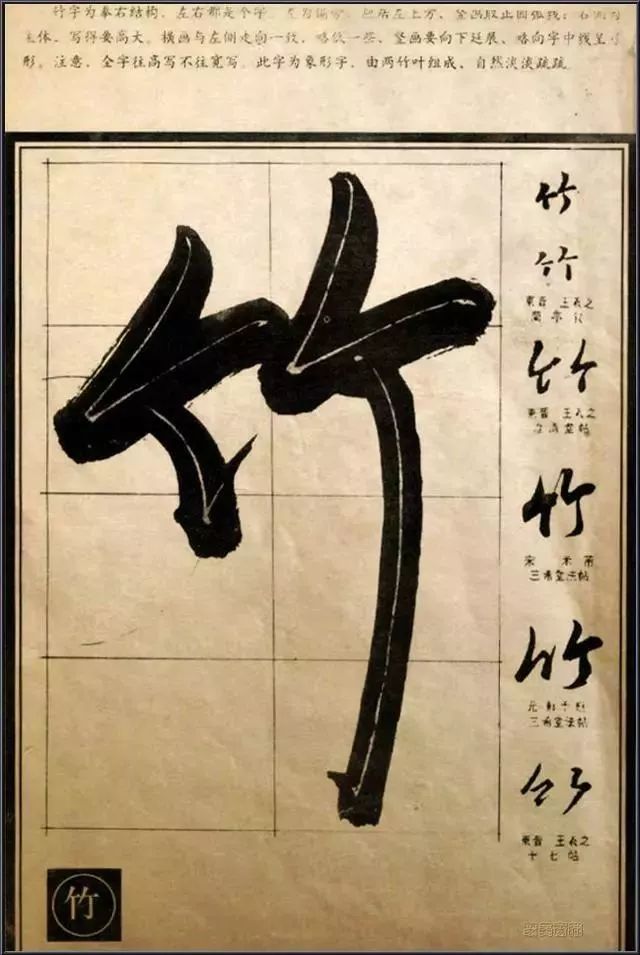 竹字为奉右结构，左右都是个字。左为偏旁，
主体，写得要高大。横画与左侧走向一致，略低一些，竖画要向下延展，略向字中线呈
形。注意，全字往高写不往宽写。此字为象形字，由两竹叶组成，自然淡淡疏疏
竹
竹
竹
東晋 王羲之
蘭亭
竹
東晋 王羲之
堂帖
竹
宋 米芾
三希堂法帖
竹
元
三希堂法帖
竹
東晋 王羲之
十七帖
竹